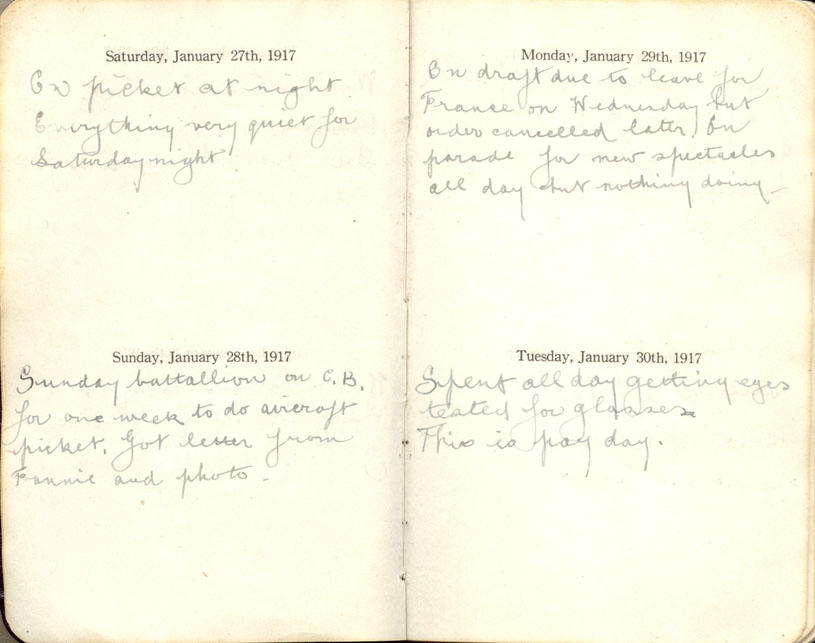 Saturday, January 27th, 1917
On picket at night.
Everything very quiet for
Saturday night
Sunday, January 28th, 1917
Sunday battallion on C.B.
for one week to do aircraft
picket. Got letter from
Fannie and photo.
Monday, January 29th, 1917
On draft due to leave for
France on Wednesday but
order cancelled later. On
parade for new spectacles
all day but nothing doing
Tuesday, January 30th, 1917
Spent all day getting eyes
tested for glasses
This is pay day.